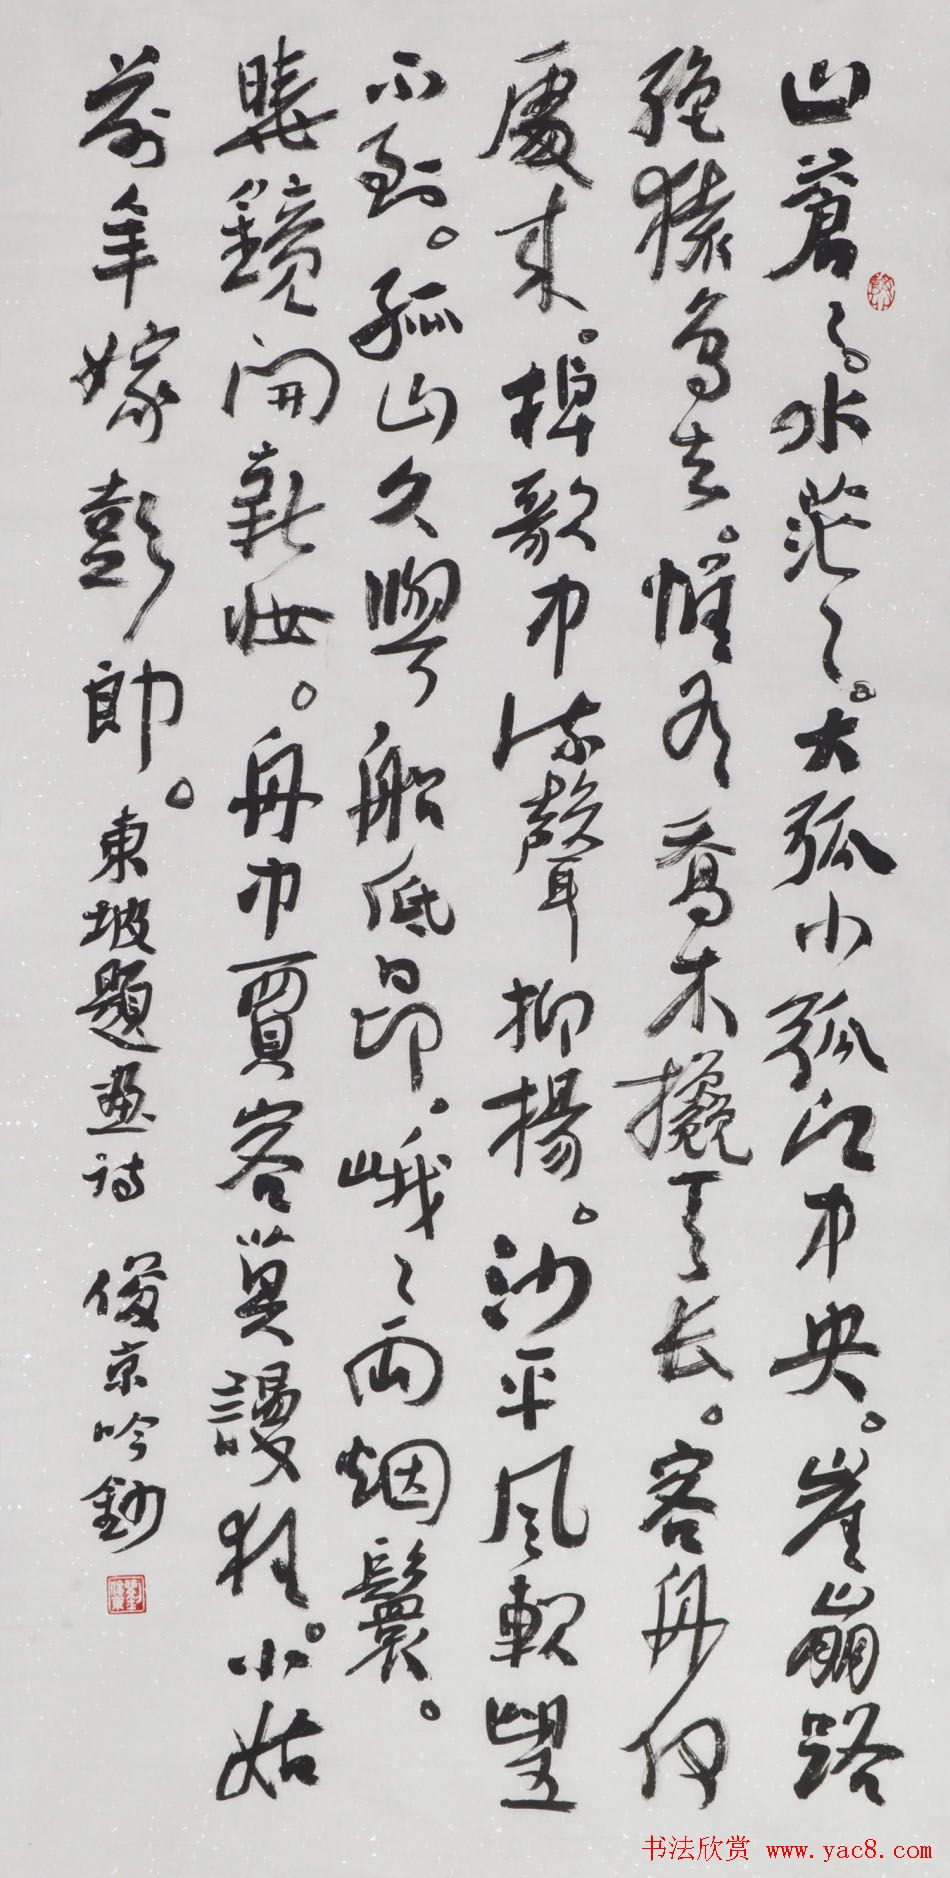 山蒼々。水茫々。大孤小孤江中央。崖崩路
絶猿鳥去。惟有喬木攙天长。客舟何
處来。棹歌中流聲抑揚。沙平風軟望
不到。孤山久與船低昂。峨々兩烟鬟。
曉鏡開新妝。舟中賈客莫謾狂。小姑
前年嫁彭郎。東坡題畫诗 俊京吟鈔
书法欣赏 www.yac8.com